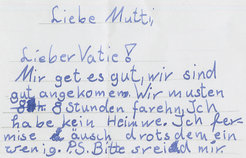 Liebe Mutti,
Lieber Vatie!
Mir get es gut, wir sind
gut angekomen. Wir musten
8 Stunden farehn, Ich
habe kein Heimwe. Ich fer
mise äusch drotsdem ein
wenig. P.S. Bitte sreid mir